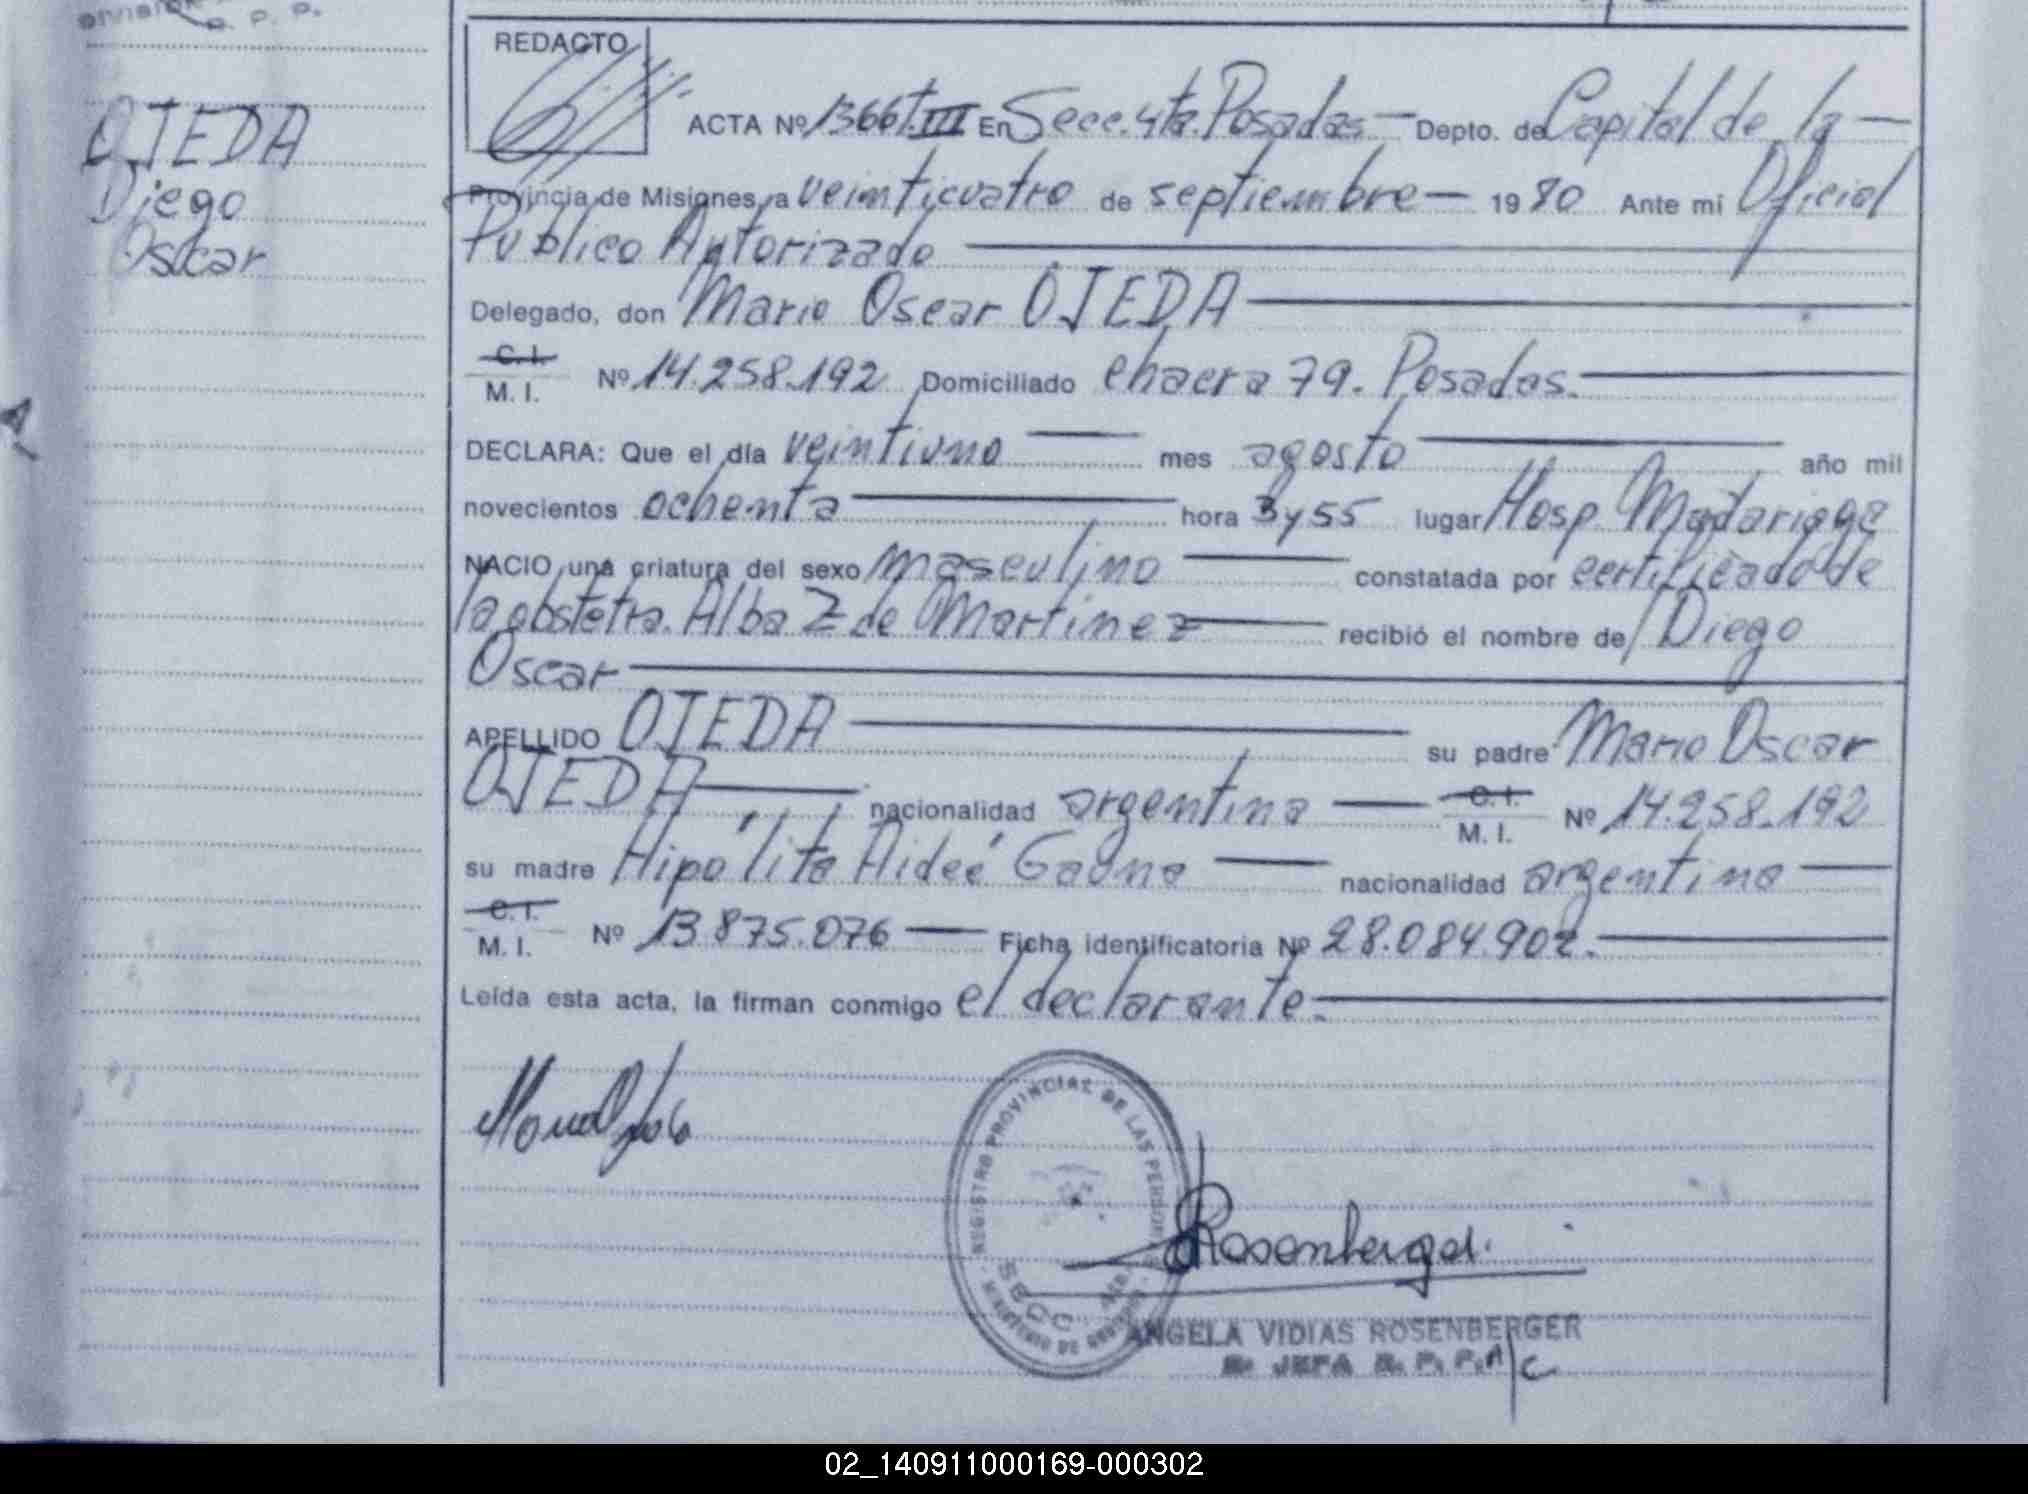 R. P. P.
OJEDA
Diego
Oscar
REDACTO
ACTA Nº 1366 T III En Secc. 4ta. Posadas — Depto. de Capital de la —
Provincia de Misiones, a veinticuatro de septiembre — 1980 Ante mí Oficial
Público Autorizado
Delegado, don Mario Oscar OJEDA
C. I.
M. I. Nº 14.258.192 Domiciliado chacra 79. Posadas.
DECLARA: Que el día veintiuno mes agosto año mil
novecientos ochenta hora 3 y 55 lugar Hosp. Madariaga
NACIO una criatura del sexo masculino constatada por certificado de
la obstetra. Alba Z de Martinez recibió el nombre de Diego
Oscar
APELLIDO OJEDA su padre Mario Oscar
OJEDA nacionalidad argentina C. I. M. I. Nº 14.258.192
su madre Hipólita Aideé Gauna nacionalidad argentina
C. I.
M. I. Nº 13.875.076 Ficha identificatoria Nº 28.084.902.
Leída esta acta, la firman conmigo el declarante.
REGISTRO PROVINCIAL DE LAS PERSONAS
SECC. 4ta.
MINISTERIO DE GOBIERNO
Rosenberger.
ANGELA VIDIAS ROSENBERGER
JEFA R. P. P. A/C
02_140911000169-000302